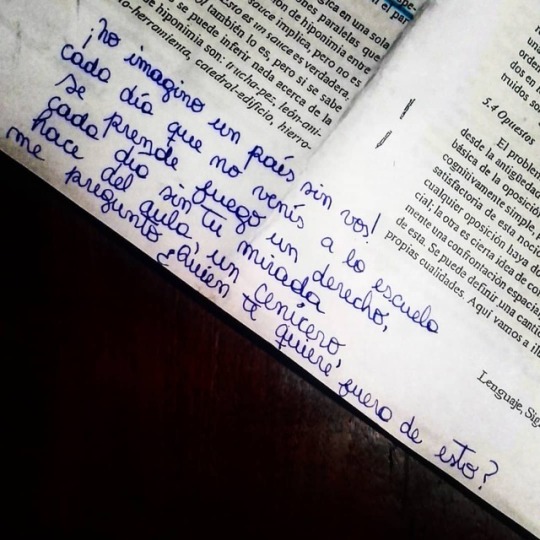 gica en una sola
paralelas que
de hiponimia entre
implica, pero no es
Esto es un sauce es verdadera
también lo es, pero si se sabe
se puede inferir nada acerca de la
de hiponimia son: trucha-pez, león-ani-
-herramienta, catedral-edificio, hierro-
¡no imagino un país sin vos!
cada día que no venís a la escuela
se prende fuego un derecho,
cada día sin tu mirada
hace del aula, un cenicero,
me pregunto ¿quien te quiere, fuera de esto?
5.4 Opuestos
El problem
desde la antigüedad
básica de la oposición
cognitivamente simple,
satisfactoria de esta noci
cualquier oposición haya do
cial; la otra es cierta idea de con
mente una confrontación espacial
de esta. Se puede definir una canti
propias cualidades. Aquí vamos a il
Lenguaje, Sig